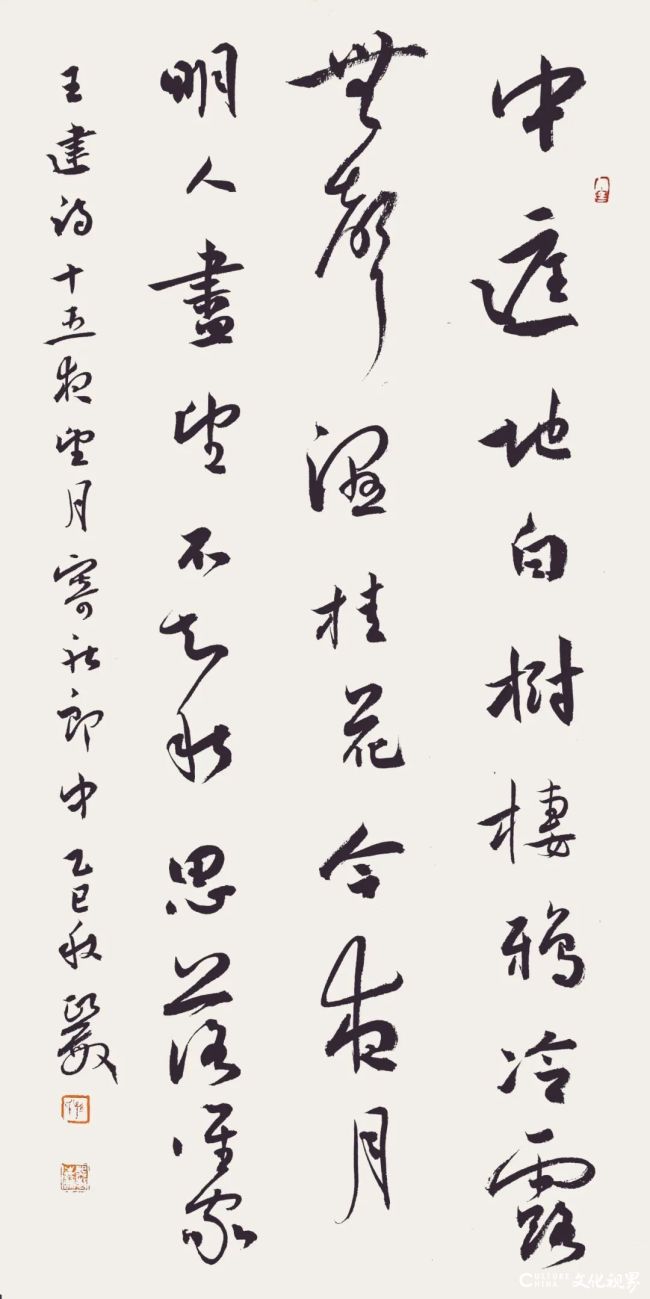 中庭地白樹棲鴉冷露
無聲濕桂花今夜月
明人盡望不知秋思落誰家
王建詩十五夜望月寄杜郎中 乙巳秋
CULTURE CHINA 文化视界